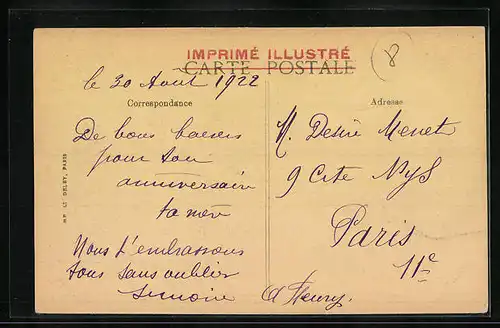 IMPRIMÉ ILLUSTRÉ
CARTE POSTALE
8
le 30 Aout 1922
Correspondance
De bons baisers
pour ton
anniversaire
ta mère
Nous t'embrassons
tous sans oublier
Simone
Adresse
M. Désiré Menet
9 Cité Nys
Paris
11e
A Fleury
DELEY, PARIS